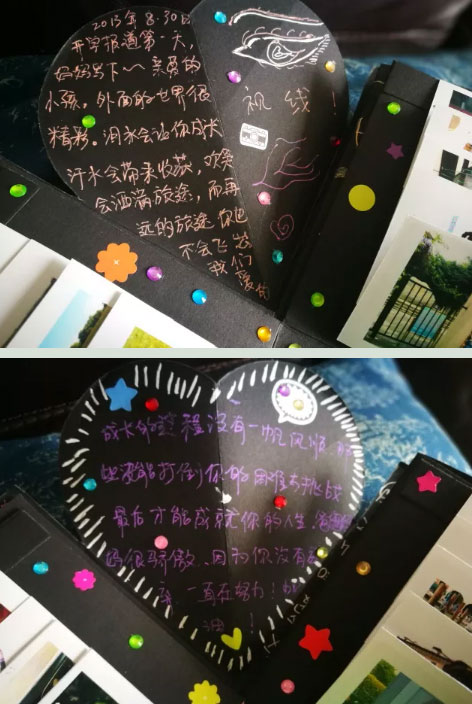 2015年8.30日
开学报道第一天,
妈妈写下~亲爱的
小孩。外面的世界很
精彩。泪水会让你成长
汗水会带来收获,欢笑
会洒满旅途,而再
远的旅途你也
不会飞出
我们
爱的
视线!
成长的
程没有一帆风顺,
打倒你的困难与挑战
最后才能成就你的人生,
妈很骄傲、因为你没有
一直在努力!加
油!